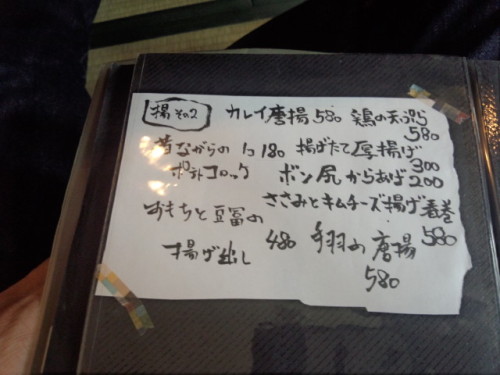 揚その2
カレイ唐揚 580 鶏の天ぷら
580
昔ながらの 1コ 180 揚げたて厚揚げ
ポテトコロッケ 300
ボン尻からあげ 200
ささみとキムチーズ揚げ春巻
おもちと豆冨の 580
揚げ出し 480 手羽の唐揚
580